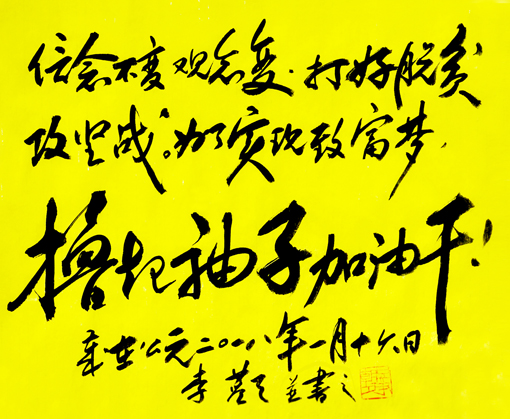 信念不变观念变.打好脱贫
攻坚战。为了实现致富梦,
撸起袖子加油干!
公元二〇一八年一月十六日
李 并书之